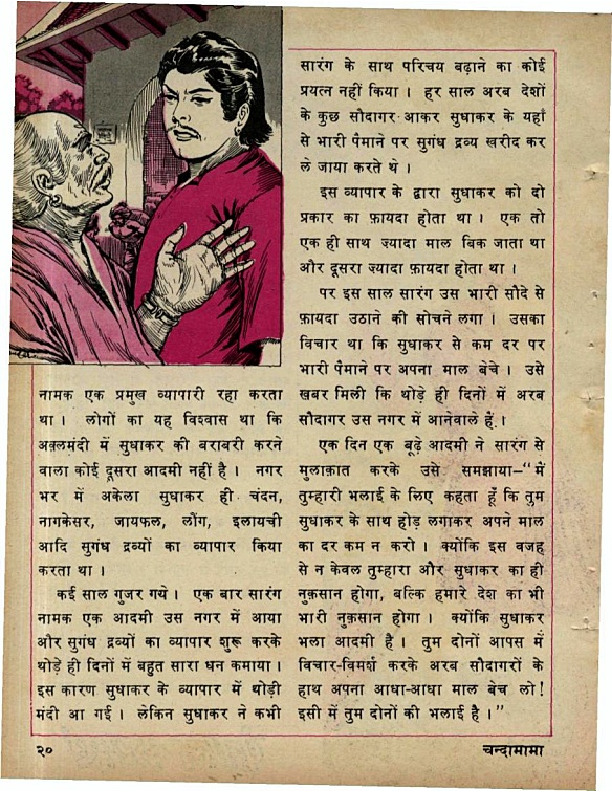 नामक एक प्रमुख व्यापारी रहा करता
था । लोगों का यह विश्वास था कि
अक़्लमंदी में सुधाकर की बराबरी करने
वाला कोई दूसरा आदमी नहीं है । नगर
भर में अकेला सुधाकर ही चंदन,
नागकेसर, जायफल, लौंग, इलायची
आदि सुगंध द्रव्यों का व्यापार किया
करता था ।
कई साल गुजर गये । एक बार सारंग
नामक एक आदमी उस नगर में आया
और सुगंध द्रव्यों का व्यापार शुरू करके
थोड़े ही दिनों में बहुत सारा धन कमाया ।
इस कारण सुधाकर के व्यापार में थोड़ी
मंदी आ गई । लेकिन सुधाकर ने कभी
सारंग के साथ परिचय बढ़ाने का कोई
प्रयत्न नहीं किया । हर साल अरब देशों
के कुछ सौदागर आकर सुधाकर के यहाँ
से भारी पैमाने पर सुगंध द्रव्य खरीद कर
ले जाया करते थे ।
इस व्यापार के द्वारा सुधाकर को दो
प्रकार का फ़ायदा होता था । एक तो
एक ही साथ ज्यादा माल बिक जाता था
और दूसरा ज्यादा फ़ायदा होता था ।
पर इस साल सारंग उस भारी सौदे से
फ़ायदा उठाने की सोचने लगा । उसका
विचार था कि सुधाकर से कम दर पर
भारी पैमाने पर अपना माल बेचे । उसे
खबर मिली कि थोड़े ही दिनों में अरब
सौदागर उस नगर में आनेवाले हैं ।
एक दिन एक बूढ़े आदमी ने सारंग से
मुलाक़ात करके उसे समझाया–"में
तुम्हारी भलाई के लिए कहता हूँ कि तुम
सुधाकर के साथ होड़ लगाकर अपने माल
का दर कम न करो । क्योंकि इस वजह
से न केवल तुम्हारा और सुधाकर का ही
नुक़सान होगा, बल्कि हमारे देश का भी
भारी नुक़सान होगा । क्योंकि सुधाकर
भला आदमी है । तुम दोनों आपस में
विचार-विमर्श करके अरब सौदागरों के
हाथ अपना आधा-आधा माल बेच लो !
इसी में तुम दोनों की भलाई है ।"
२०
चन्दामामा